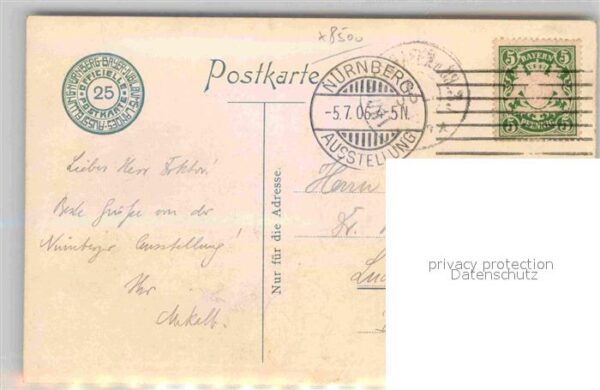 x 8500
NÜRNBERG-BAYER-JUBILÄUMS-LANDES-AUSSTELLUNG
OFFICIELLE
25
POSTKARTE
Postkarte
NÜRNBERG
-5.7.06.4-5N.
AUSSTELLUNG
5 BAYERN 5
5 PFENNIG 5
Lieber Herr Doktor!
Beste Grüße von der
Nürnberger Ausstellung!
Ihr
Nur für die Adresse.
Herrn
Dr.
privacy protection
Datenschutz